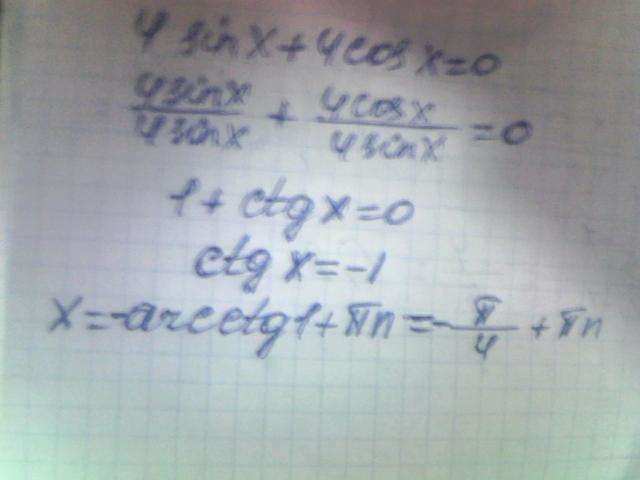 4 sin x + 4 cos x = 0
4 sin x / 4 sin x + 4 cos x / 4 sin x = 0
1 + ctg x = 0
ctg x = -1
x = -arcctg 1 + πn = -π/4 + πn